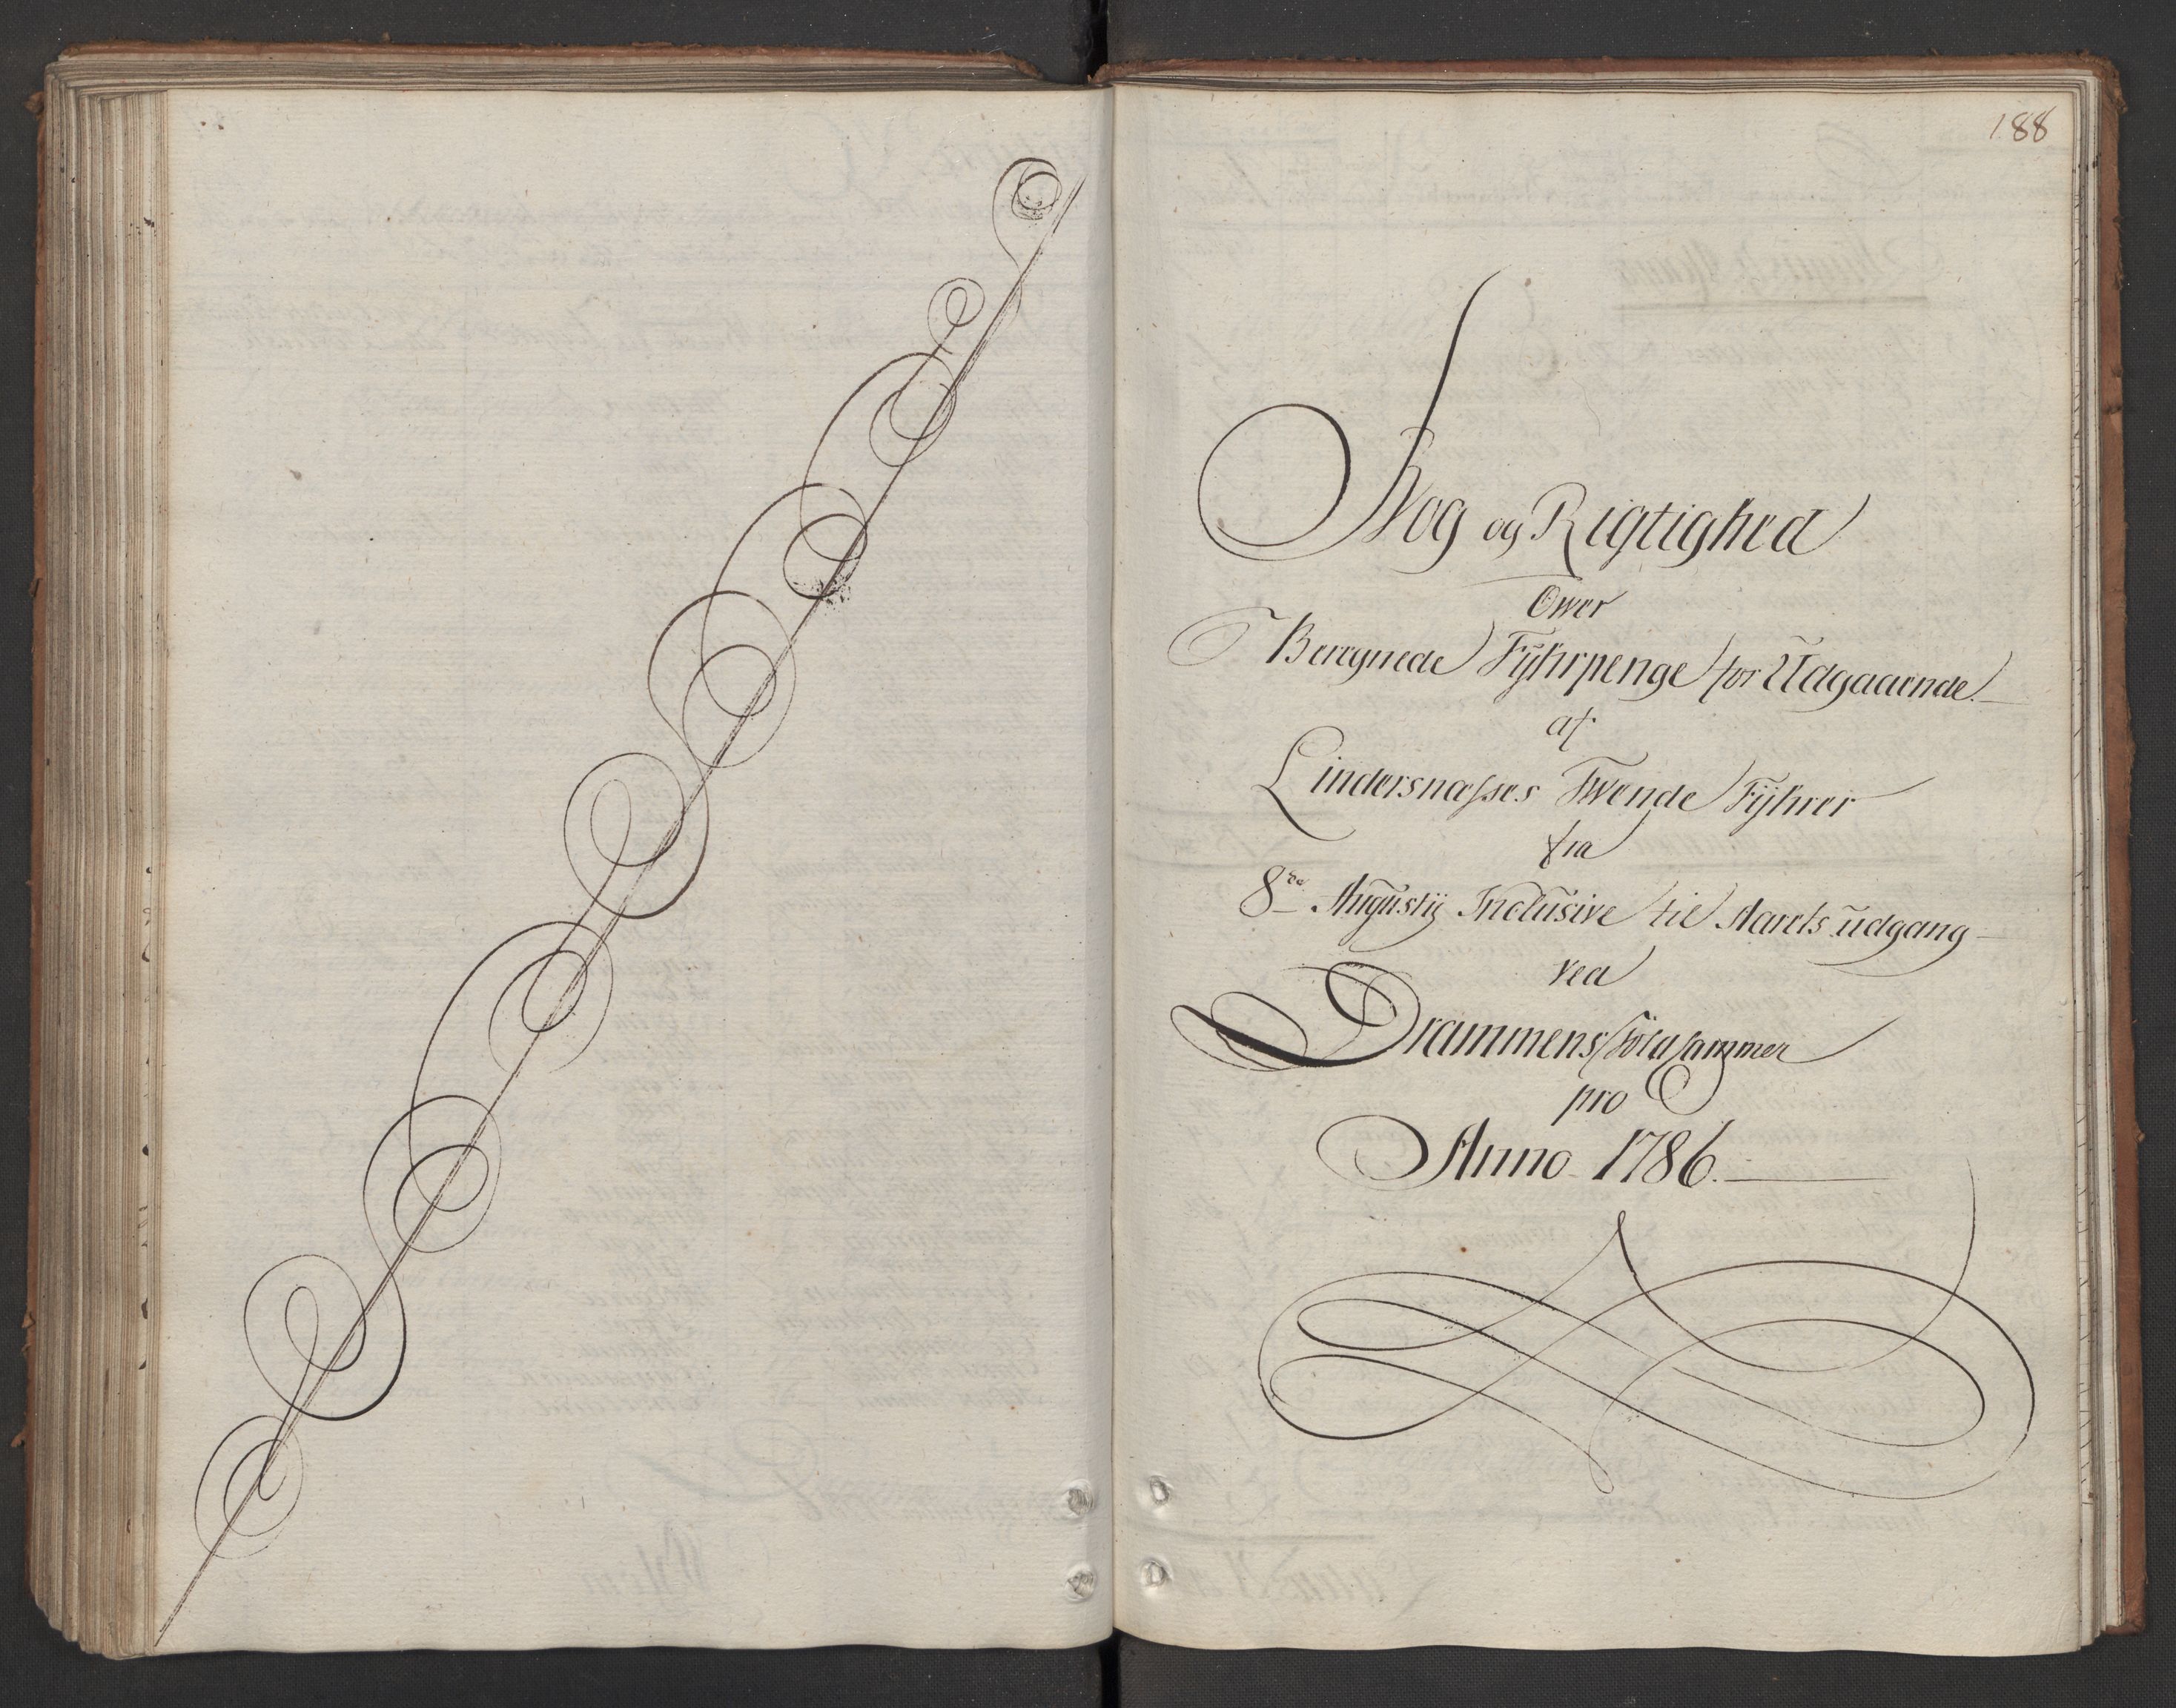 188
Bog og Rigtighed
Over
Beregnede Fyhrpenge for Udgaaende
af
Lindersnæsses Twende Fyhrer
fra
8de Augustij Inclusive til Aarets udgang
ved
Drammens Told Cammer
pro
Anno 1786.